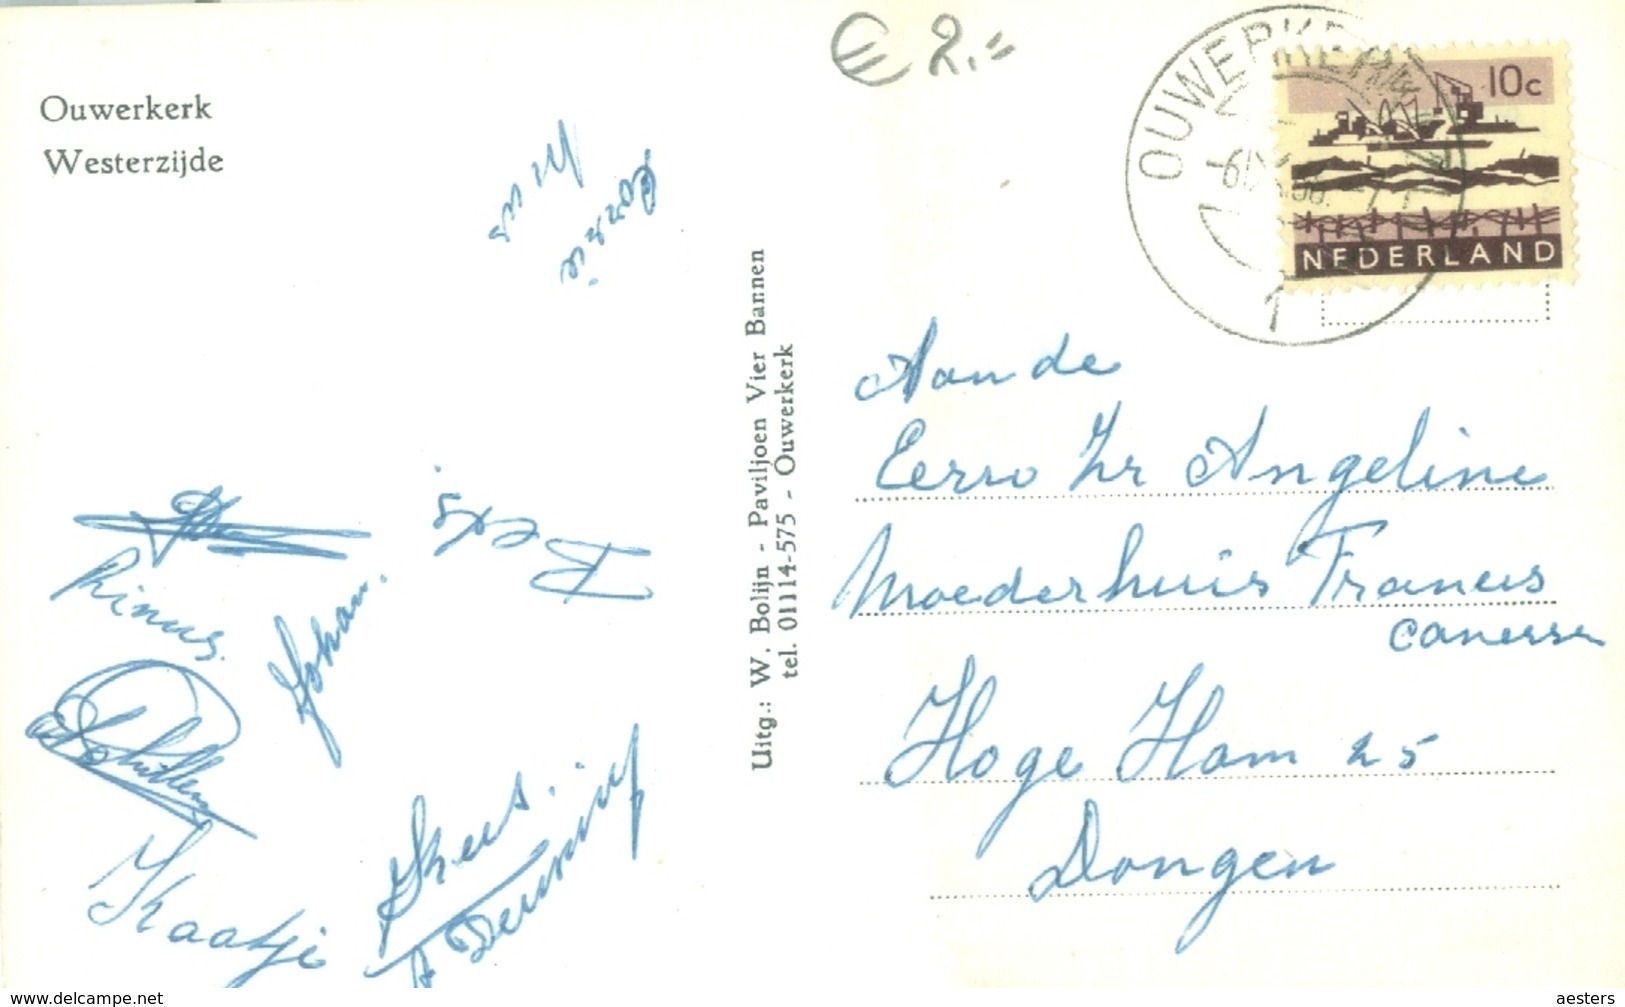 Ouwerkerk
Westerzijde
Corrie
Rinus.
Johan.
Kaatje
Kees.
Uitg.: W. Bolijn - Paviljoen Vier Bannen
tel. 01114-575 - Ouwerkerk
€ 2.=
OUWERKERK
1
10c
NEDERLAND
Aan de
Eerw Zr Angeline
Moederhuis Francis
canessen
Hoge Ham 25
Dongen
www.delcampe.net
aesters